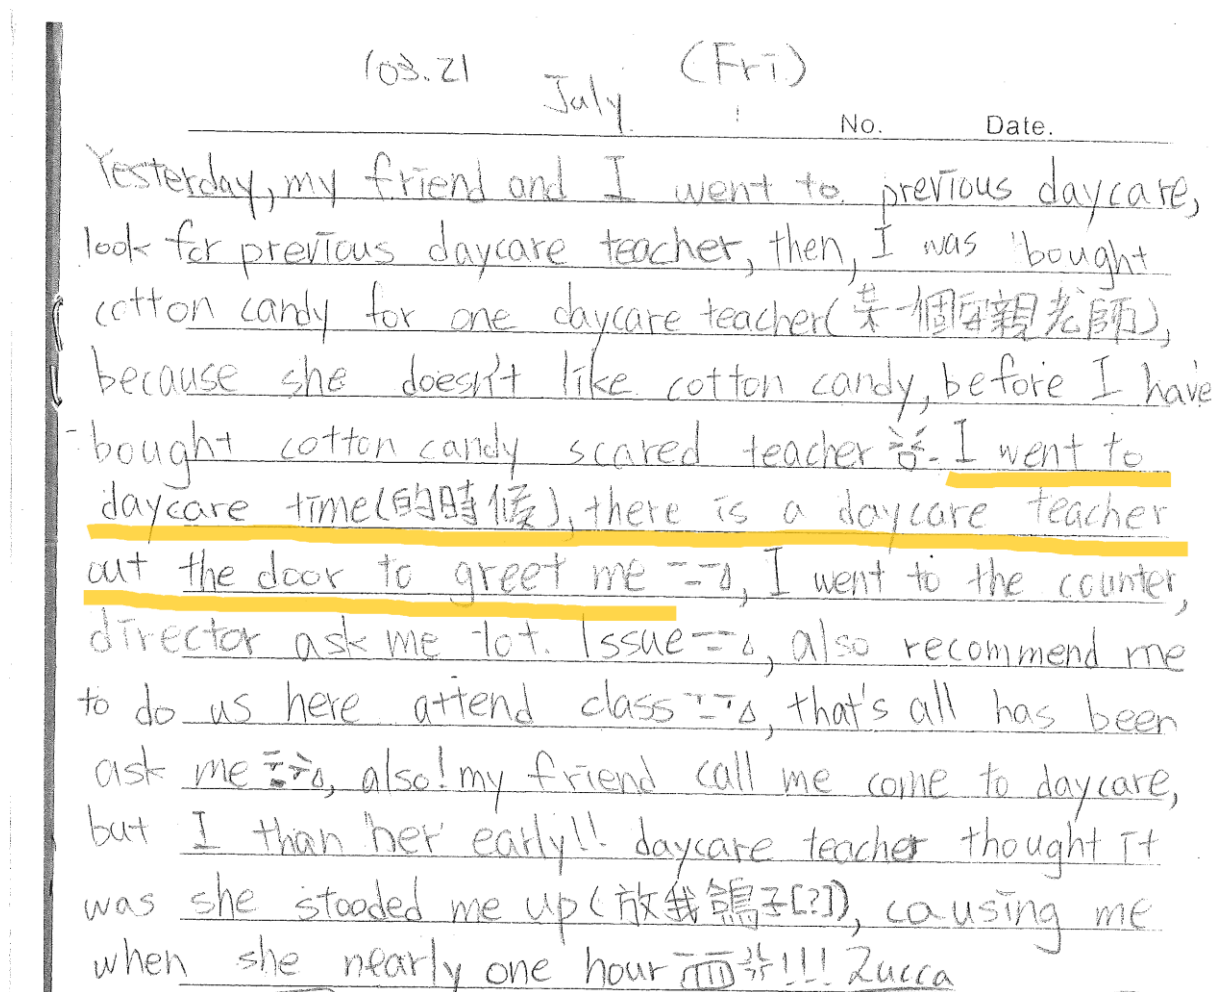 103.21 July (Fri)
No. Date.
Yesterday, my friend and I went to previous daycare,
look for previous daycare teacher, then, I was bought
cotton candy for one daycare teacher(某一個母親老師),
because she doesn't like cotton candy, before I have
bought cotton candy scared teacher. I went to
daycare time(的時候), there is a daycare teacher
out the door to greet me, I went to the counter,
director ask me lot. Issue, also recommend me
to do us here attend class, that's all has been
ask me, also! my friend call me come to daycare,
but I than her early!! daycare teacher thought it
was she stooded me up(放我鴿子[?]), causing me
when she nearly one hour !!! Zucca